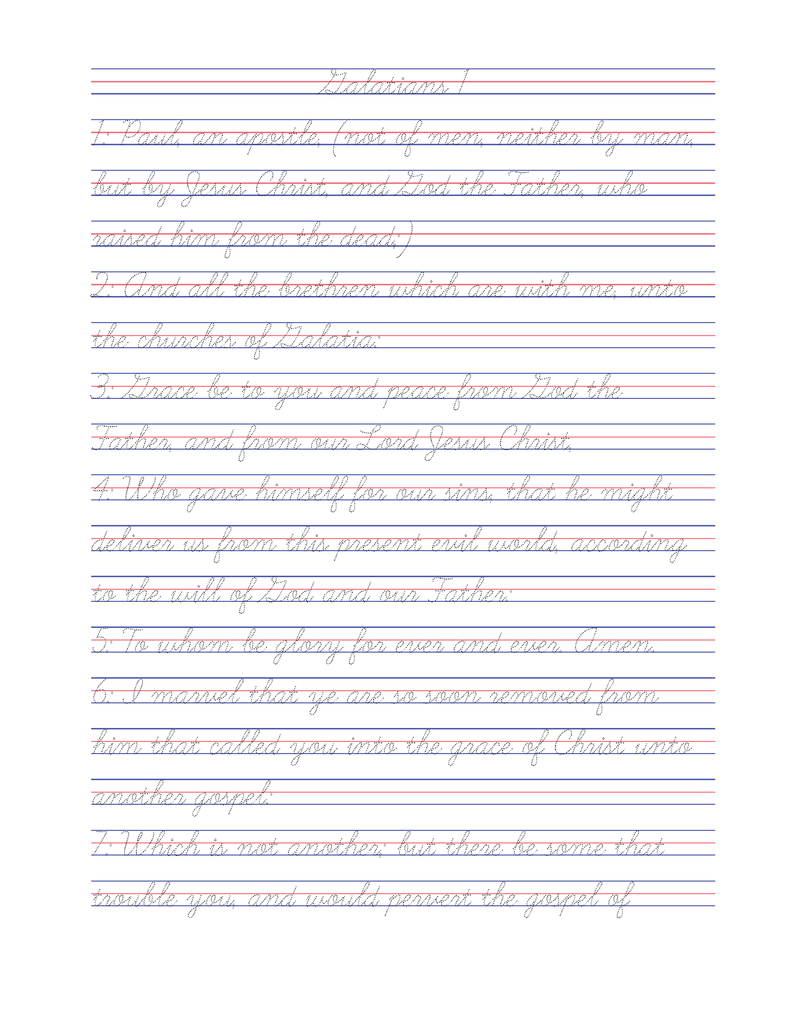 Galatians 1
1: Paul, an apostle, (not of men, neither by man,
but by Jesus Christ, and God the Father, who
raised him from the dead;)
2: And all the brethren which are with me, unto
the churches of Galatia:
3: Grace be to you and peace from God the
Father, and from our Lord Jesus Christ,
4: Who gave himself for our sins, that he might
deliver us from this present evil world, according
to the will of God and our Father:
5: To whom be glory for ever and ever. Amen.
6: I marvel that ye are so soon removed from
him that called you into the grace of Christ unto
another gospel:
7: Which is not another; but there be some that
trouble you, and would pervert the gospel of